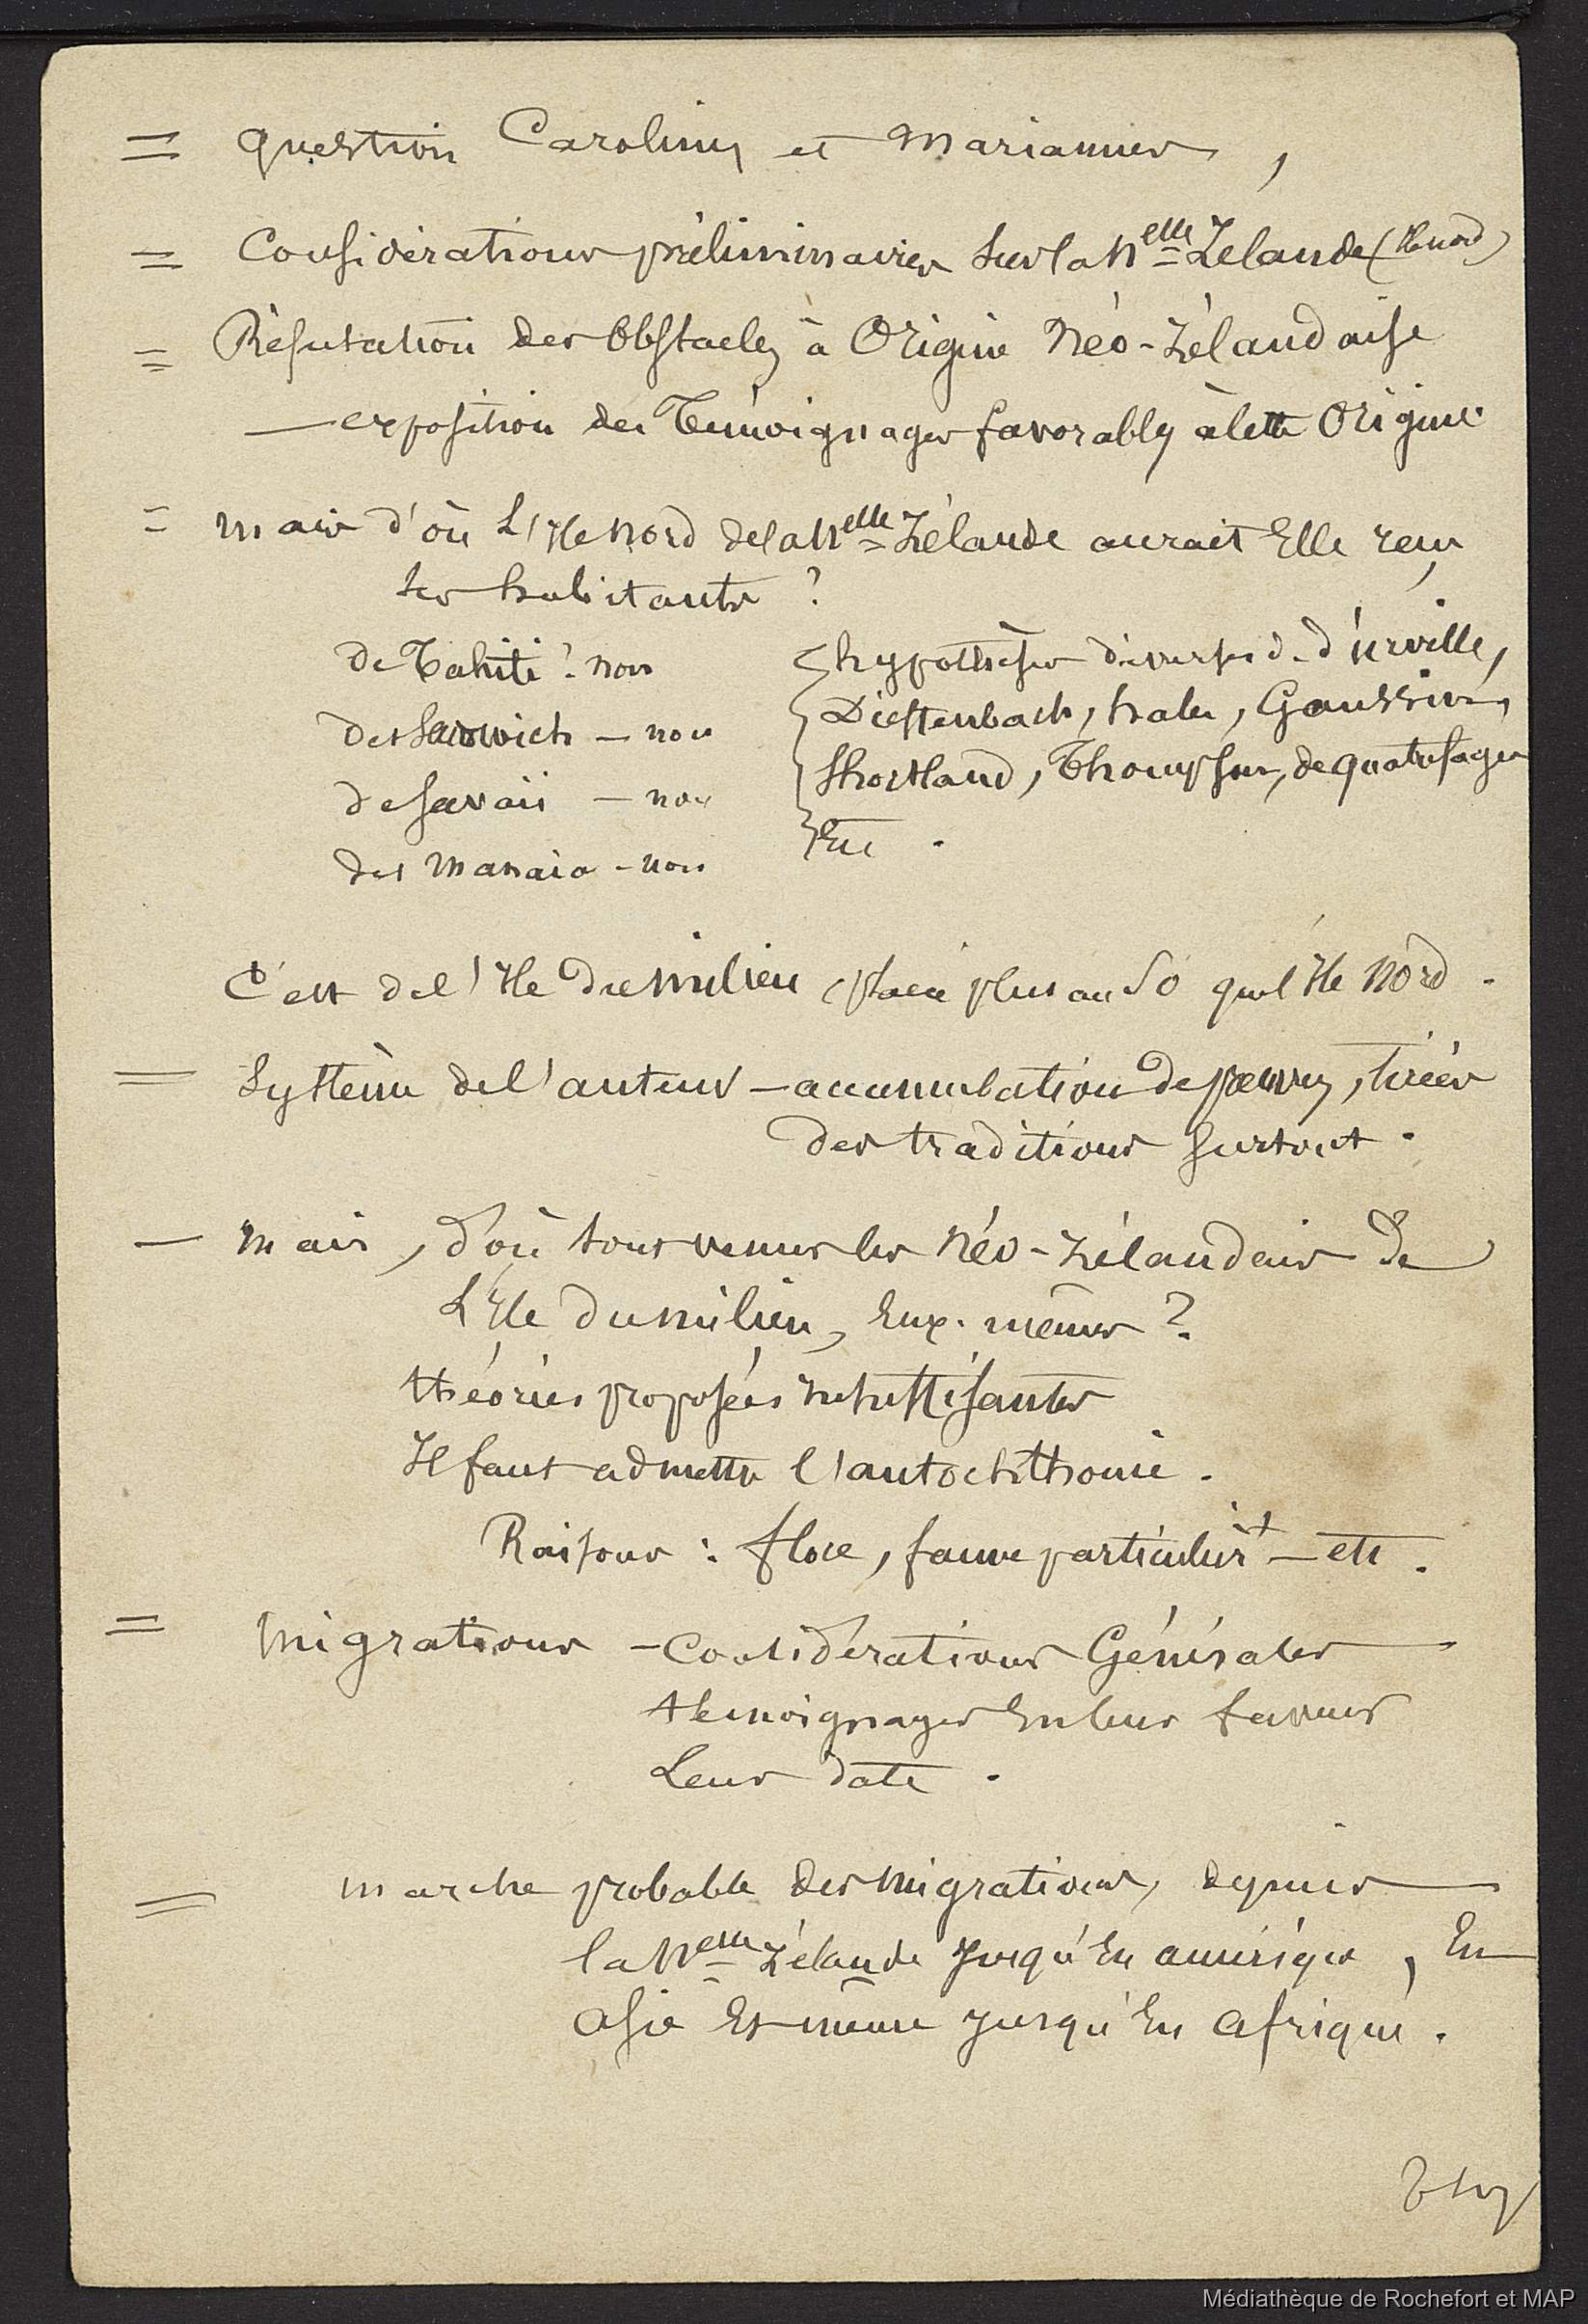 = Question Carolines et Mariannes,
= Considérations préliminaires sur la Nelle Zélande (Ile nord)
= Réfutation des Obstacles à Origine Néo-Zélandaise
— exposition des Témoignages favorables à cette Origine
= mais d'où L'Ile Nord de la Nelle Zélande aurait Elle reçu
ses habitants ?
de Tahiti ? non
des Sandwich — non
de Savaii — non
des Manaia - non
hypothèses diverses de d'urville,
Dieffenbach, hale, Gaussin,
Shortland, Thompson, de quatrefages
Etc.
C'est de l'Ile du Milieu, placée plus au SO que l'Ile Nord.
= Système de l'auteur — accumulation de preuves, tirées
des traditions surtout.
— Mais, d'où sont venus les Néo-Zélandais de
L'Ile du Milieu, Eux-mêmes ?
théories proposées insuffisantes
Il faut admettre l'autochthonie.
Raisons : flore, faune particulières — etc.
= Migrations — Considérations Générales
témoignages En leur faveur
Leur date.
= marche probable des Migrations, depuis
la Nelle Zélande jusqu'En amérique, En
asie Et même jusqu'En afrique.
Médiathèque de Rochefort et MAP